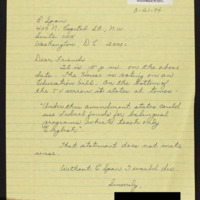 3-21-94
C Span
400 N. Capitol St., NW
Suite 650
Washington D.C. 20001
Dear Friends
It is 5 p.m. on the above
date. The House is acting on an
Education bill. On the bottom of
the TV screen it states at times:
"Under this amendment states could
use federal funds for bilingual
programs which teach only
English"
That statement does not make
sense.
Without C Span I would die.
Sincerely,